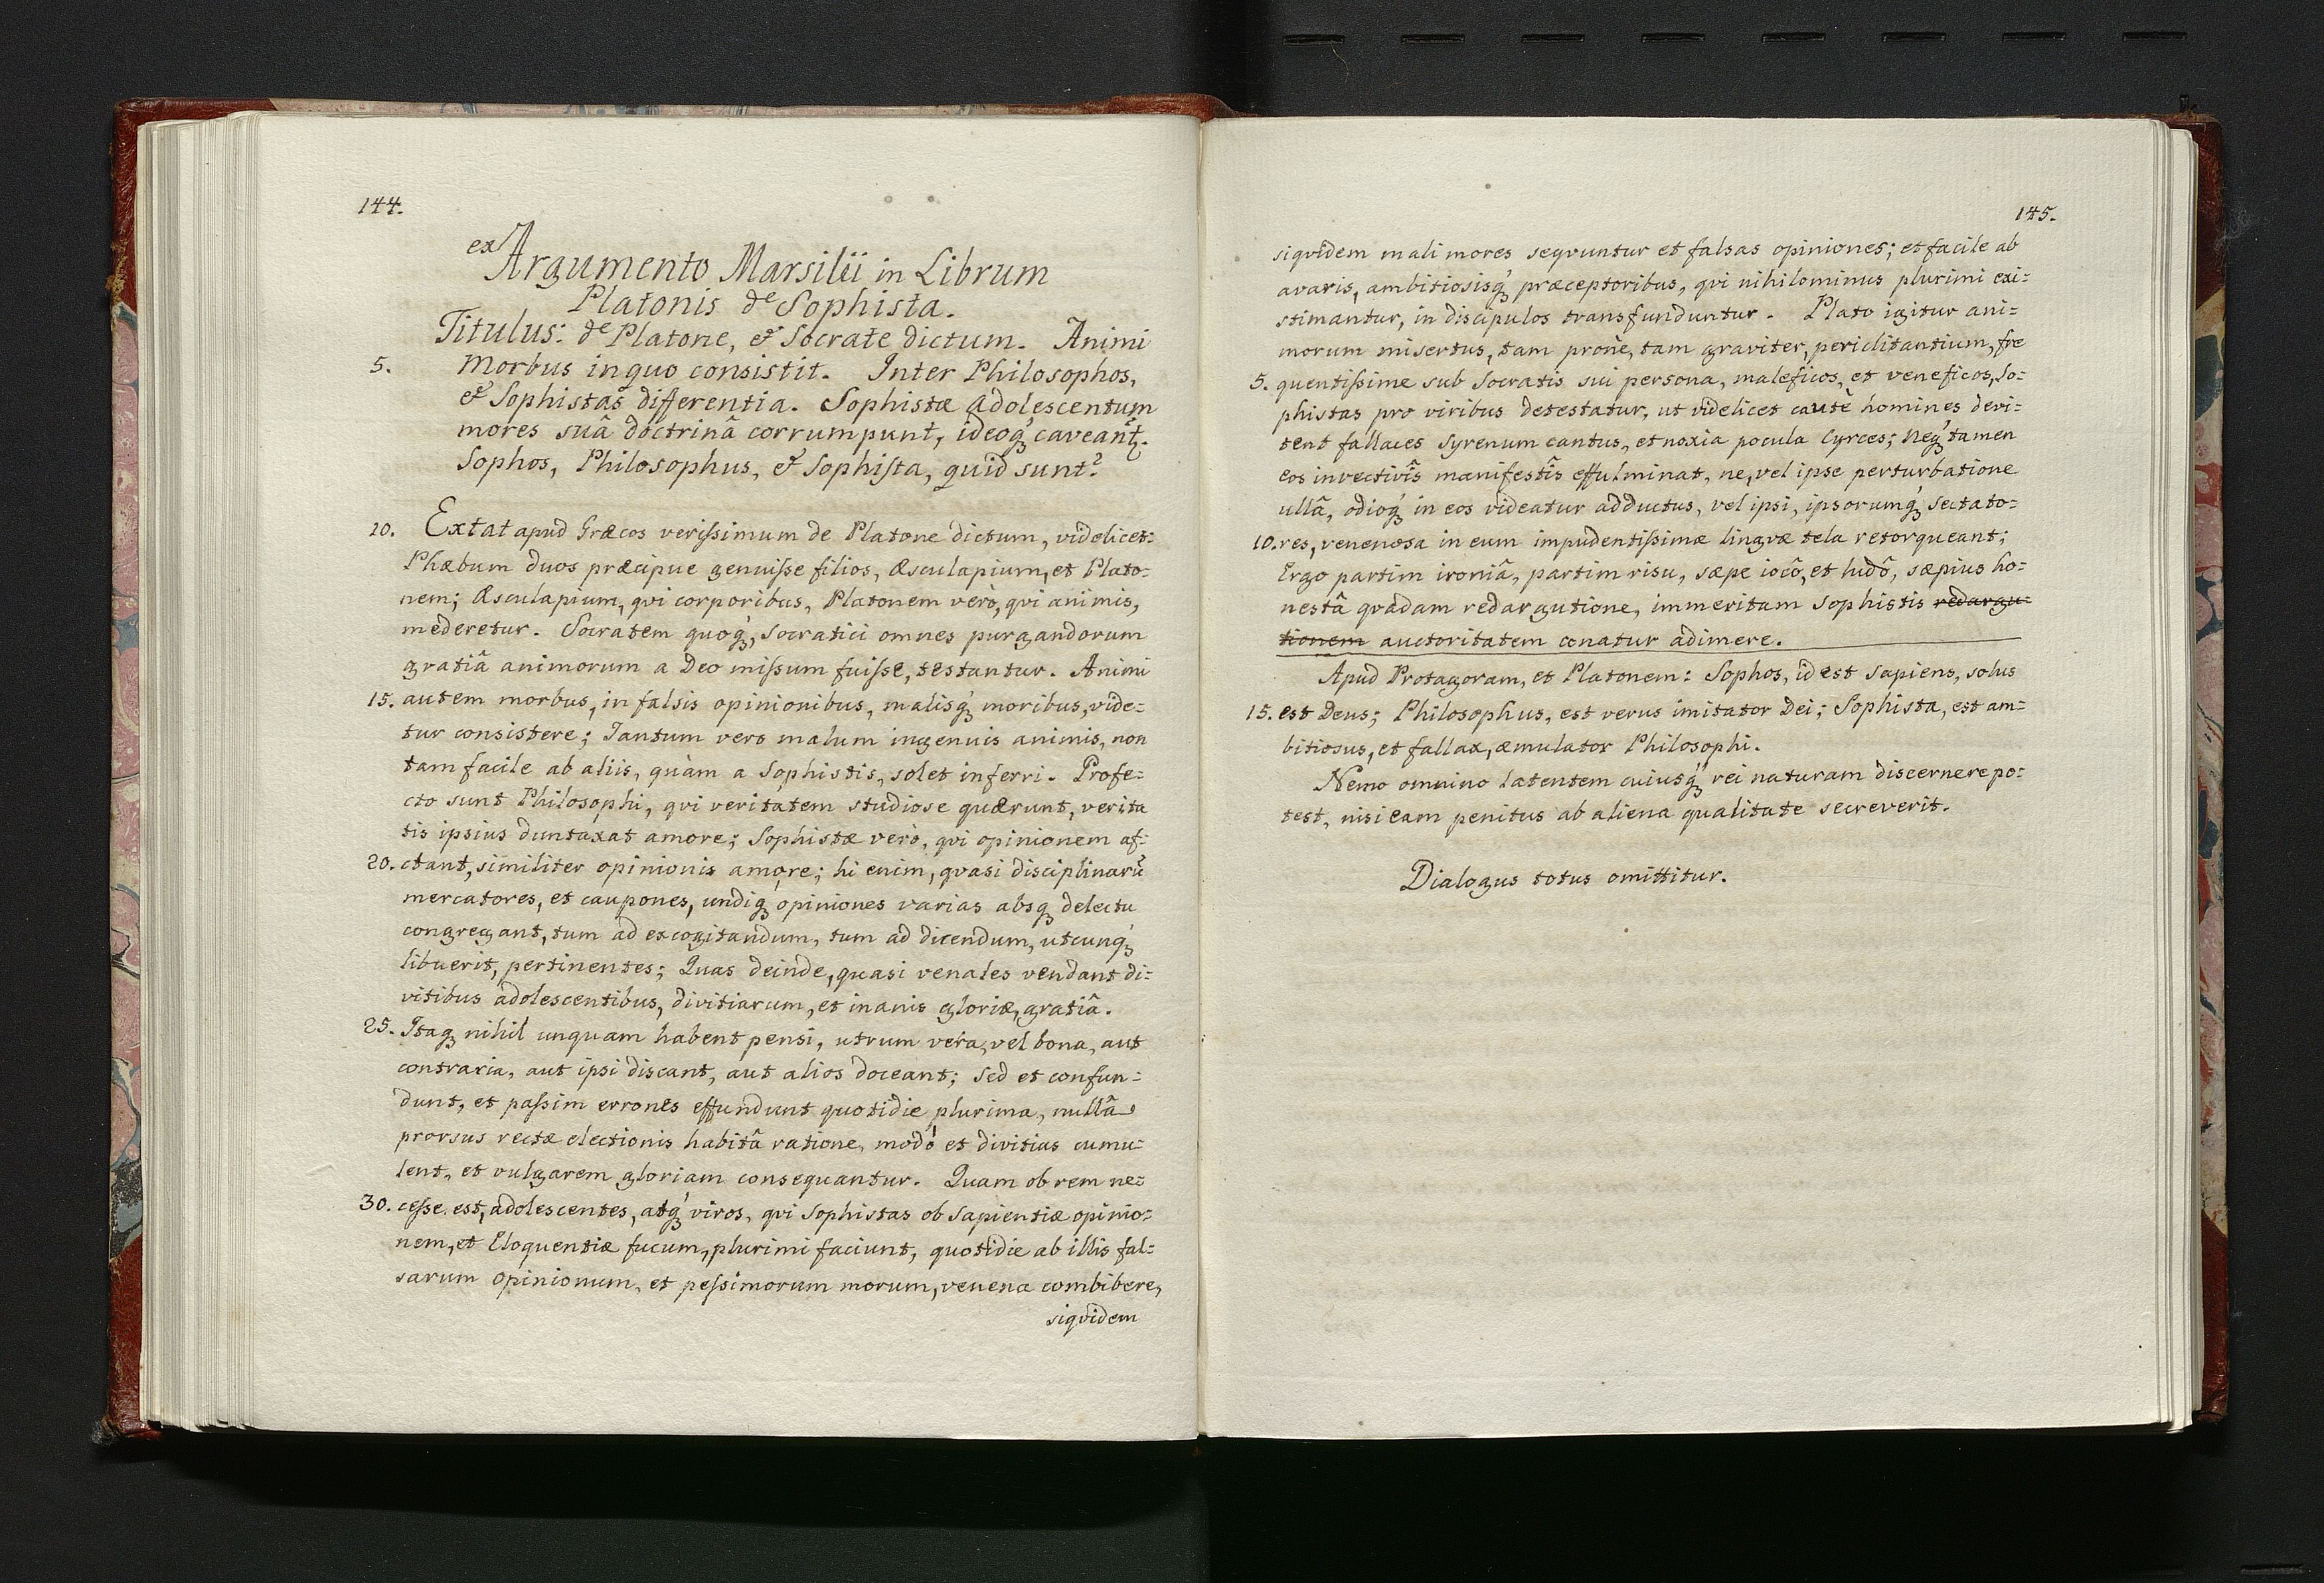 144.
ex Argumento Marsilii in Librum
Platonis de Sophista.
Titulus: de Platone, & Socrate dictum. Animi
5. Morbus in quo consistit. Inter Philosophos,
& Sophistas differentia. Sophistæ adolescentum
mores suâ doctrinâ corrumpunt, ideoq́ꝫ caveant̃.
Sophos, Philosophus, & Sophista, quid sunt?
10. Extat apud Græcos verißimum de Platone dictum, videlicet:
Phæbum duos præcipue genuiße filios, Æsculapium, et Plato=
nem; Æsculapium, qvi corporibus, Platonem verò, qvi animis,
mederetur. Socratem quoq́ꝫ, Socratici omnes purgandorum
gratiâ animorum a Deo mißum fuiße, testantur. Animi
15. autem morbus, in falsis opinionibus, malisq́ꝫ moribus, vide=
tur consistere; Tantum vero malum ingenuis animis, non
tam facile ab aliis, quàm a Sophistis, solet inferri. Profe=
cto sunt Philosophi, qvi veritatem studiose quærunt, verita
tis ipsius duntaxat amore; Sophistæ verò, qvi opinionem af=
20. ctant, similiter opinionis amore; hi enim, qvasi disciplinarũ
mercatores, et caupones, undiqꝫ opiniones varias absqꝫ delectu
congregant, tum ad excogitandum, tum ad dicendum, utcunq́ꝫ
libuerit, pertinentes; Quas deinde, quasi venales vendant di=
vitibus adolescentibus, divitiarum, et inanis gloriæ, gratiâ.
25. Itaqꝫ nihil unquam habent pensi, utrum vera, vel bona, aut
contraria, aut ipsi discant, aut alios doceant; sed et confun=
dunt, et paßim errones effundunt quotidie plurima, nullâ
prorsus rectæ electionis habitâ ratione, modò et divitias cumu=
lent, et vulgarem gloriam consequantur. Quam ob rem ne=
30. ceße est, adolescentes, atq́ꝫ viros, qvi Sophistas ob Sapientiæ opinio=
nem, et Eloquentiæ fucum, plurimi faciunt, quotidie ab illis fal=
sarum opinionum, et peßimorum morum, venena combibere,
siqvidem
145.
siqvidem mali mores seqvuntur et falsas opiniones; et facile ab
avaris, ambitiosisq́ꝫ præceptoribus, qvi nihilominus plurimi exi=
stimantur, in discipulos transfunduntur. Plato igitur ani=
morum misertus, tam pronè, tam graviter, periclitantium, fre
5. quentißime sub Socratis sui persona, maleficos, et veneficos, So=
phistas pro viribus detestatur, ut videlicet cautè homines devi=
tent fallaces Syrenum cantus, et noxia pocula Cyrces; Neq́ꝫ tamen
eos invectivîs manifestîs effulminat, ne, vel ipse perturbatione
ullâ, odioq́ꝫ in eos videatur adductus, vel ipsi, ipsorumq́ꝫ sectato=
10. res, venenosa in eum impudentißimæ lingvæ tela retorqueant;
Ergo partim ironiâ, partim risu, sæpe iocô, et ludô, sæpius ho=
nestâ qvadam redargutione, immeritam Sophistis redargu=
tionem auctoritatem conatur adimere.
Apud Protagoram, et Platonem: Sophos, id est Sapiens, solus
15. est Deus; Philosophus, est verus imitator Dei; Sophista, est am=
bitiosus, et fallax, æmulator Philosophi.
Nemo omnino latentem cuiusq́ꝫ rei naturam discernere po=
test, nisi eam penitus ab aliena qualitate secreverit.
Dialogus totus omittitur.